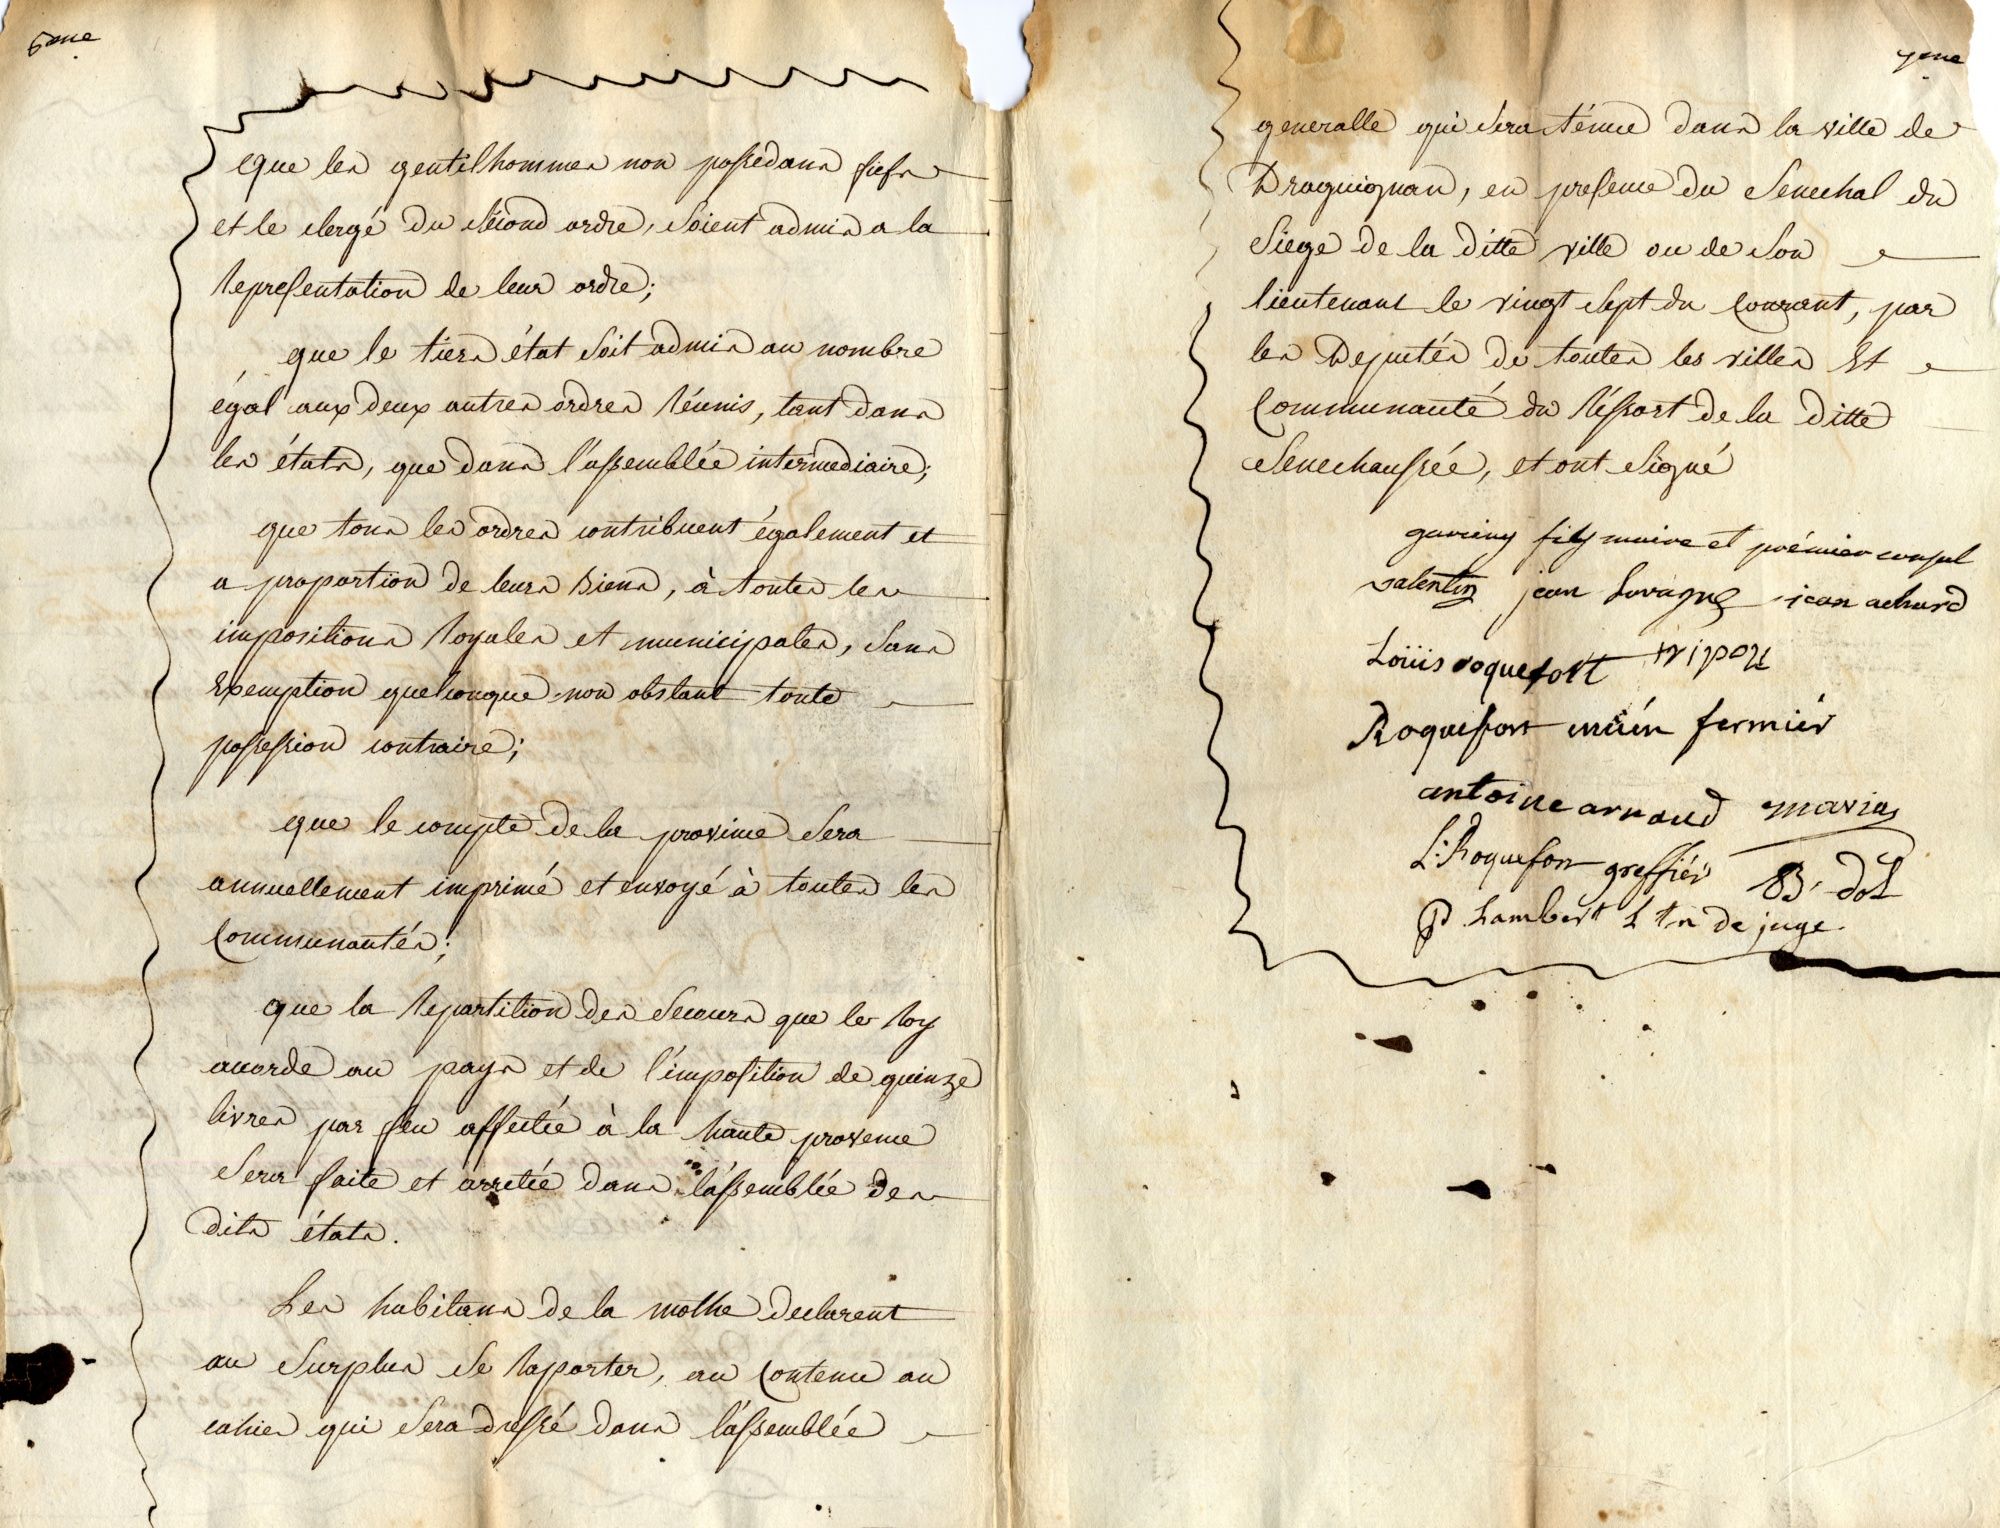 6eme
que les gentilhommes non possedans fiefs
et le clergé du sécond ordre, soient admis a la
représentation de leur ordre;
que le tiers état soit admis au nombre
égal aux deux autres ordres réunis, tant dans
les états, que dans l'assemblée intermediaire;
que tous les ordres contribuent également et
a proportion de leurs biens, à toutes les
impositions royales et municipales, sans
exemption quelconque non obstant toute
possession contraire;
que le compte de la province sera
annuellement imprimé et envoyé à toutes les
Communautés;
que la repartition des secours que le roy
acorde au pays et de l'imposition de quinze
livres par feu affectée à la haute provence
sera faite et arretée dans l'assemblée des
dits états.
Les habitans de la mothe declarent
au surplus se raporter, au contenu au
cahier qui sera dressé dans l'assemblée
7eme
generalle qui sera ténue dans la ville de
Draguignan, en presence du senechal du
siege de la ditte ville ou de son
lieutenant le vingt sept du courant, par
les Deputés de toutes les villes et
Communauté du réssort de la ditte
senechaussée, et ont signé
fils maire et prémier consul
valentin jean achard
Loüis roquefort
Roquefort fermiér
antoine arnaud
L: Roquefort greffiér B. doL
P Lambert Ltn de juge.